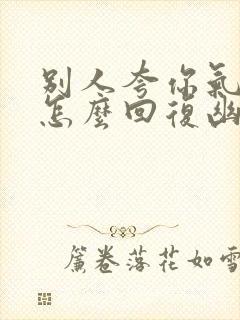 别人夸你氣
怎麼回復幽
簾卷落花如雪